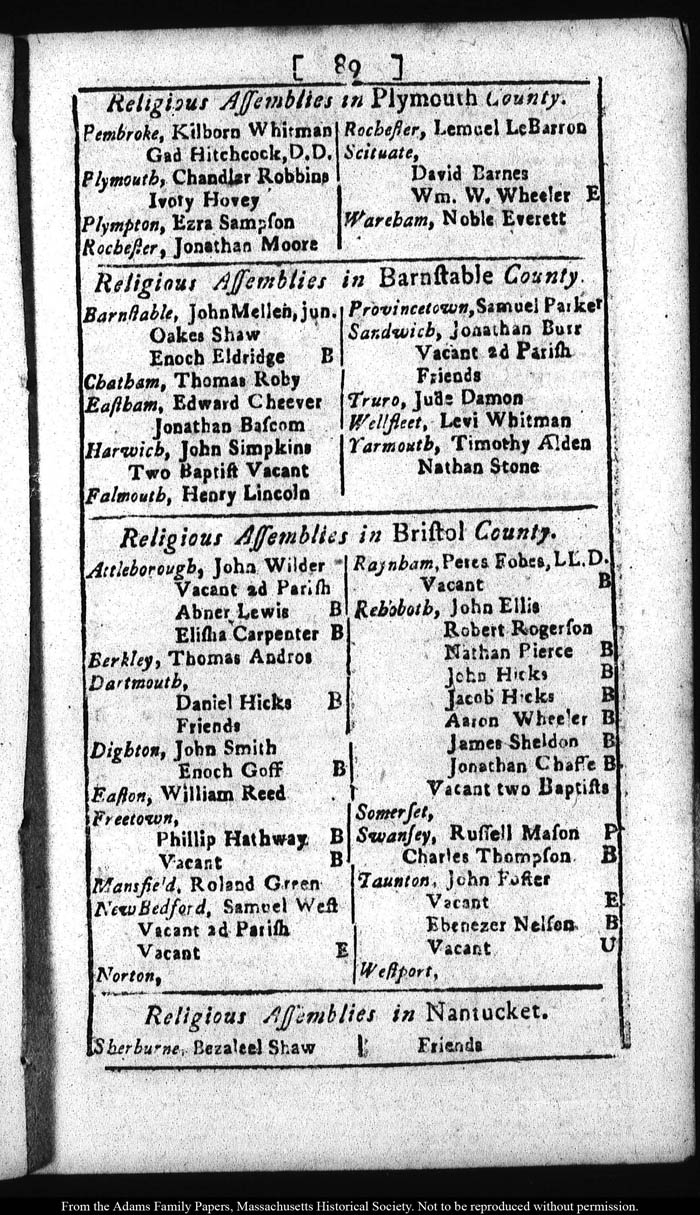 [ 89 ]
Religious Aſſemblies in Plymouth County.
Pembroke, Kilborn Whitman
Gad Hitchcock, D.D.
Plymouth, Chandler Robbins
Ivory Hovey
Plympton, Ezra Sampſon
Rocheſter, Jonathan Moore
Rocheſter, Lemuel LeBarron
Scituate,
David Barnes
Wm. W. Wheeler E
Wareham, Noble Everett
Religious Aſſemblies in Barnſtable County.
Barnſtable, John Mellen, jun.
Oakes Shaw
Enoch Eldridge B
Chatham, Thomas Roby
Eaſtham, Edward Cheever
Jonathan Baſcom
Harwich, John Simpkins
Two Baptiſt Vacant
Falmouth, Henry Lincoln
Provincetown, Samuel Parker
Sandwich, Jonathan Burr
Vacant 2d Pariſh
Friends
Truro, Jude Damon
Wellfleet, Levi Whitman
Yarmouth, Timothy Alden
Nathan Stone
Religious Aſſemblies in Briſtol County.
Attleborough, John Wilder
Vacant 2d Pariſh
Abner Lewis B
Eliſha Carpenter B
Berkley, Thomas Andros
Dartmouth,
Daniel Hicks B
Friends
Dighton, John Smith
Enoch Goff B
Eaſton, William Reed
Freetown,
Phillip Hathway B
Vacant B
Mansfield, Roland Green
New Bedford, Samuel Weſt
Vacant 2d Pariſh
Vacant E
Norton,
Raynham, Peres Fobes, LL.D.
Vacant B
Rehoboth, John Ellis
Robert Rogerſon
Nathan Pierce B
John Hicks B
Jacob Hicks B
Aaron Wheeler B
James Sheldon B
Jonathan Chaffe B
Vacant two Baptiſts
Somerſet,
Swanſey, Ruſſell Maſon P
Charles Thompſon B
Taunton, John Foſter
Vacant E
Ebenezer Nelſon B
Vacant U
Weſtport,
Religious Aſſemblies in Nantucket.
Sherburne, Bezaleel Shaw
Friends
From the Adams Family Papers, Massachusetts Historical Society. Not to be reproduced without permission.